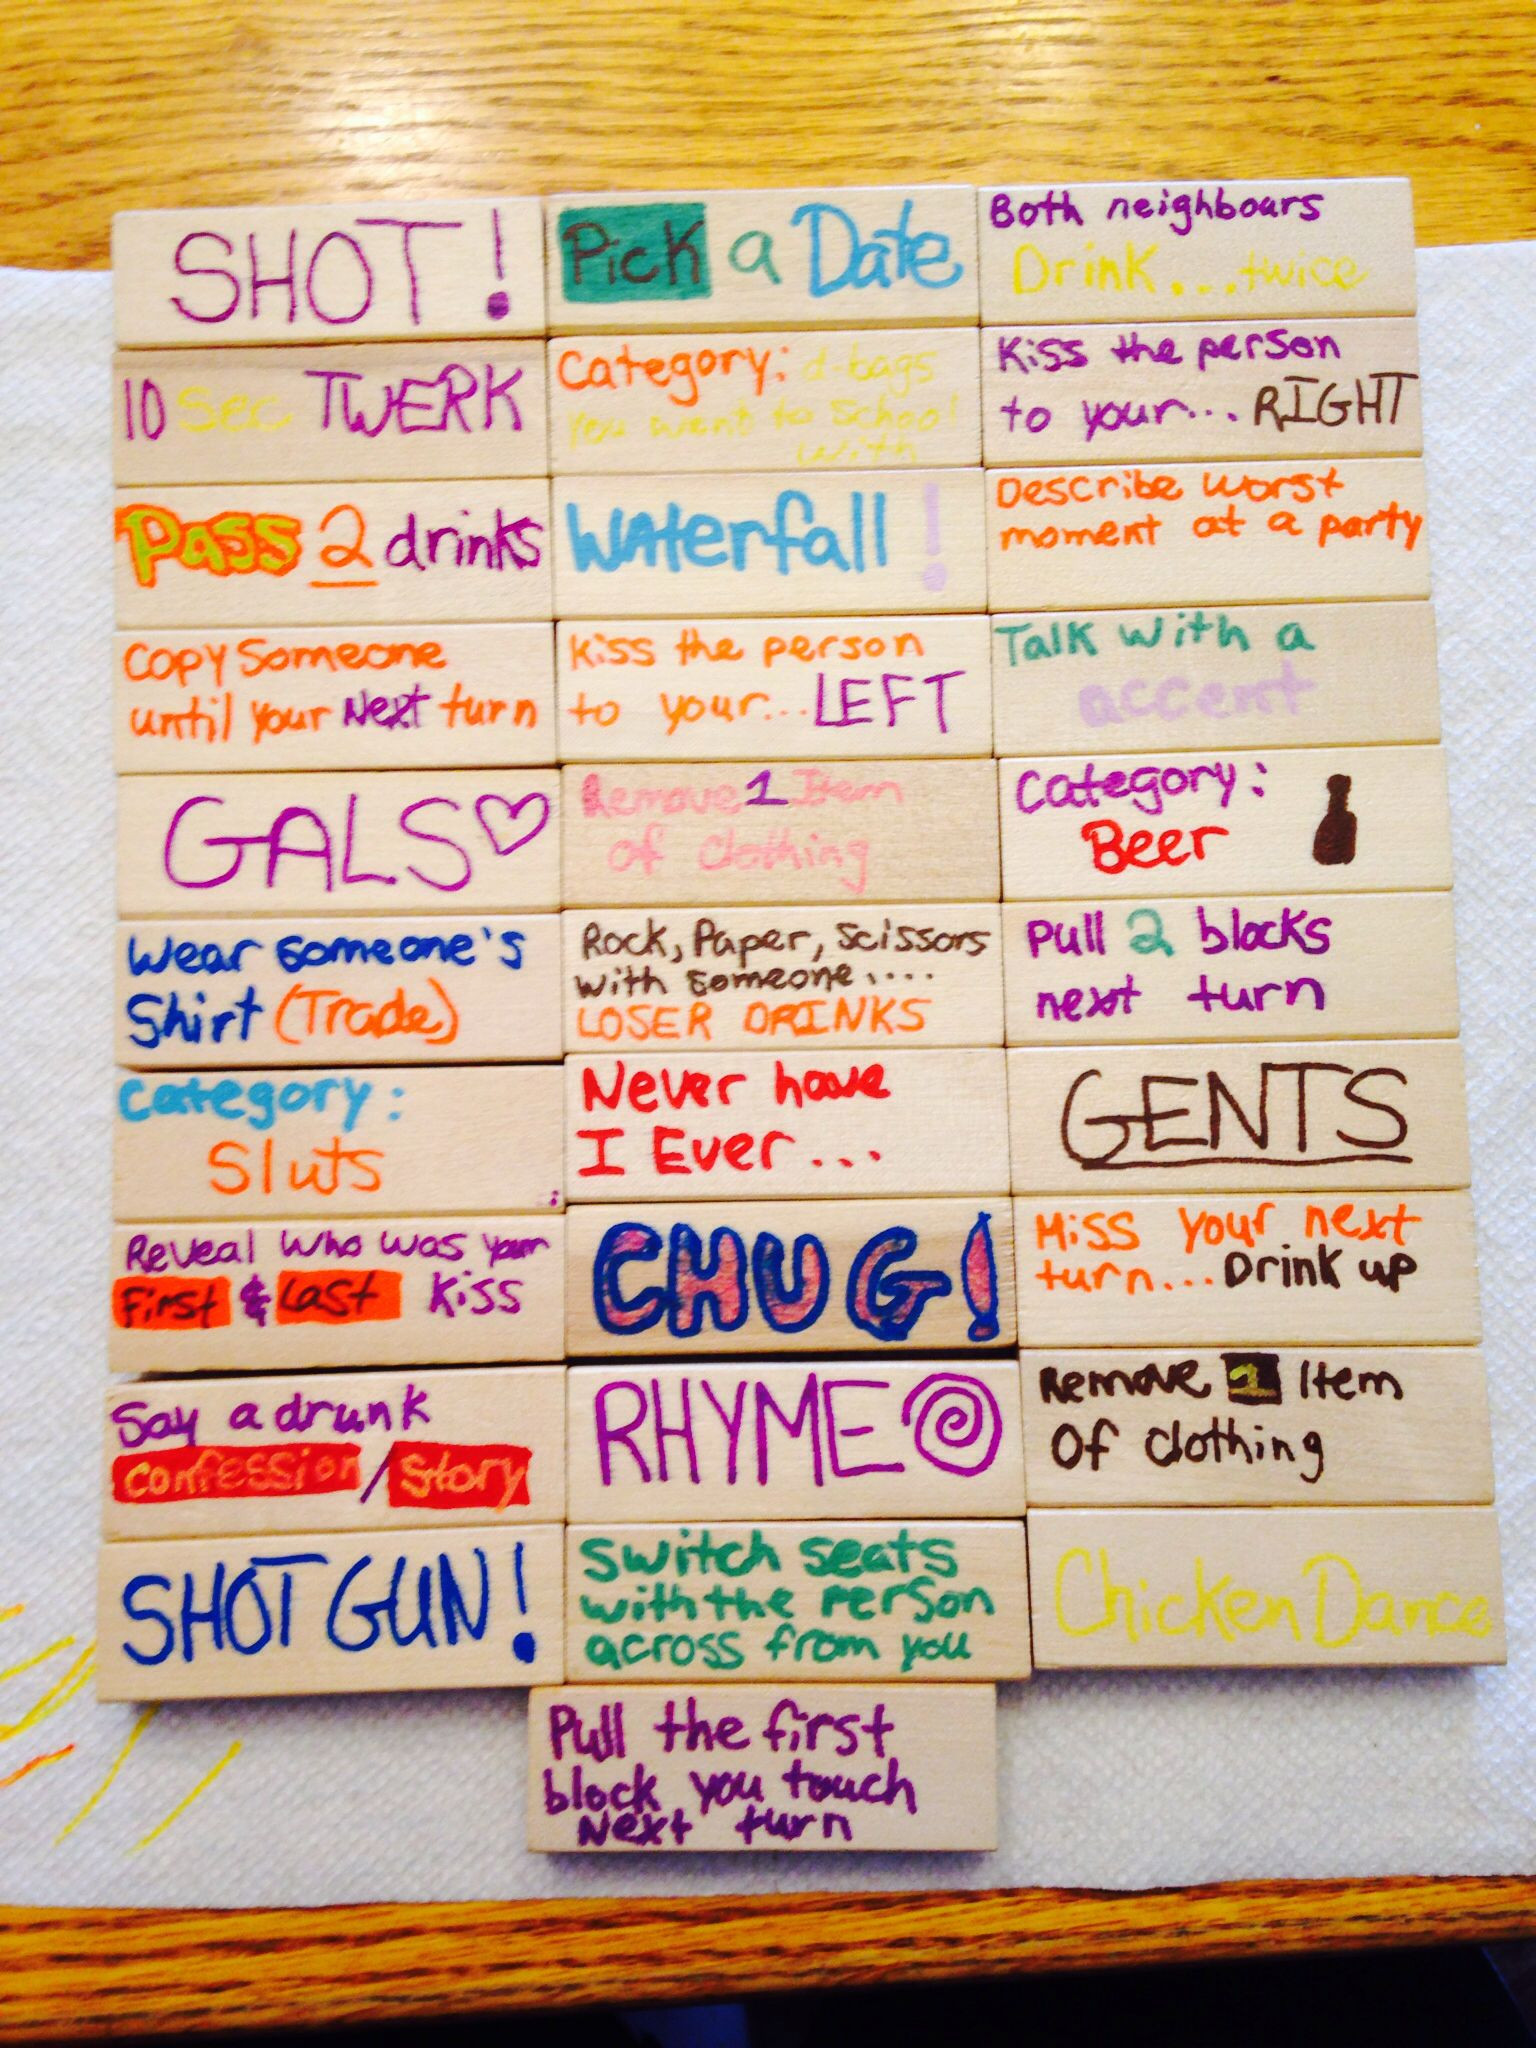 SHOT!
Pick a Date
Both neighbours
Drink...twice
10 Sec TWERK
Category: d-bags
you went to School
with
Kiss the person
to your... RIGHT
Pass 2 drinks
Waterfall!
Describe worst
moment at a party
Copy Someone
until your Next turn
Kiss the person
to your...LEFT
Talk with a
accent
GALS
Remove 1 Item
Of clothing
Category:
Beer
Wear someone's
Shirt (Trade)
Rock, Paper, Scissors
with someone....
LOSER DRINKS
Pull 2 blocks
next turn
Category:
Sluts
Never have
I Ever...
GENTS
Reveal who was your
First & Last Kiss
CHUG!
Miss your next
turn...Drink up
Say a drunk
Confession/Story
RHYME
Remove 1 Item
Of clothing
SHOTGUN!
Switch seats
with the person
across from you
Chicken Dance
Pull the first
block you touch
Next turn